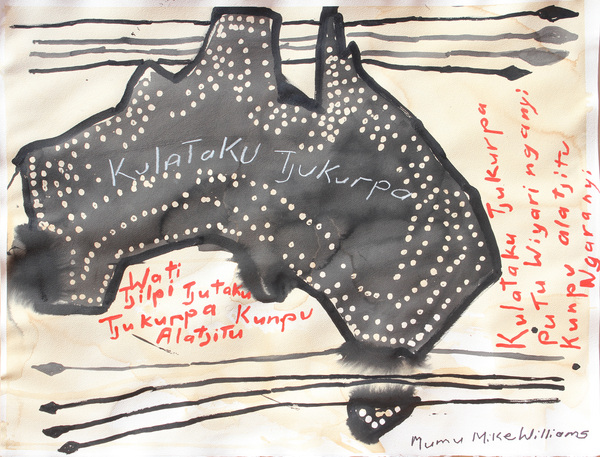 Kulataku Tjukurpa
Wati
Tjilpi Tjutaku
Tjukurpa Kunpu
Alatjitu
Kulataku Tjukurpa
Putu Wiyari nganyi
Kunpu alatjitu
Ngaranyi
Mumu Mike Williams